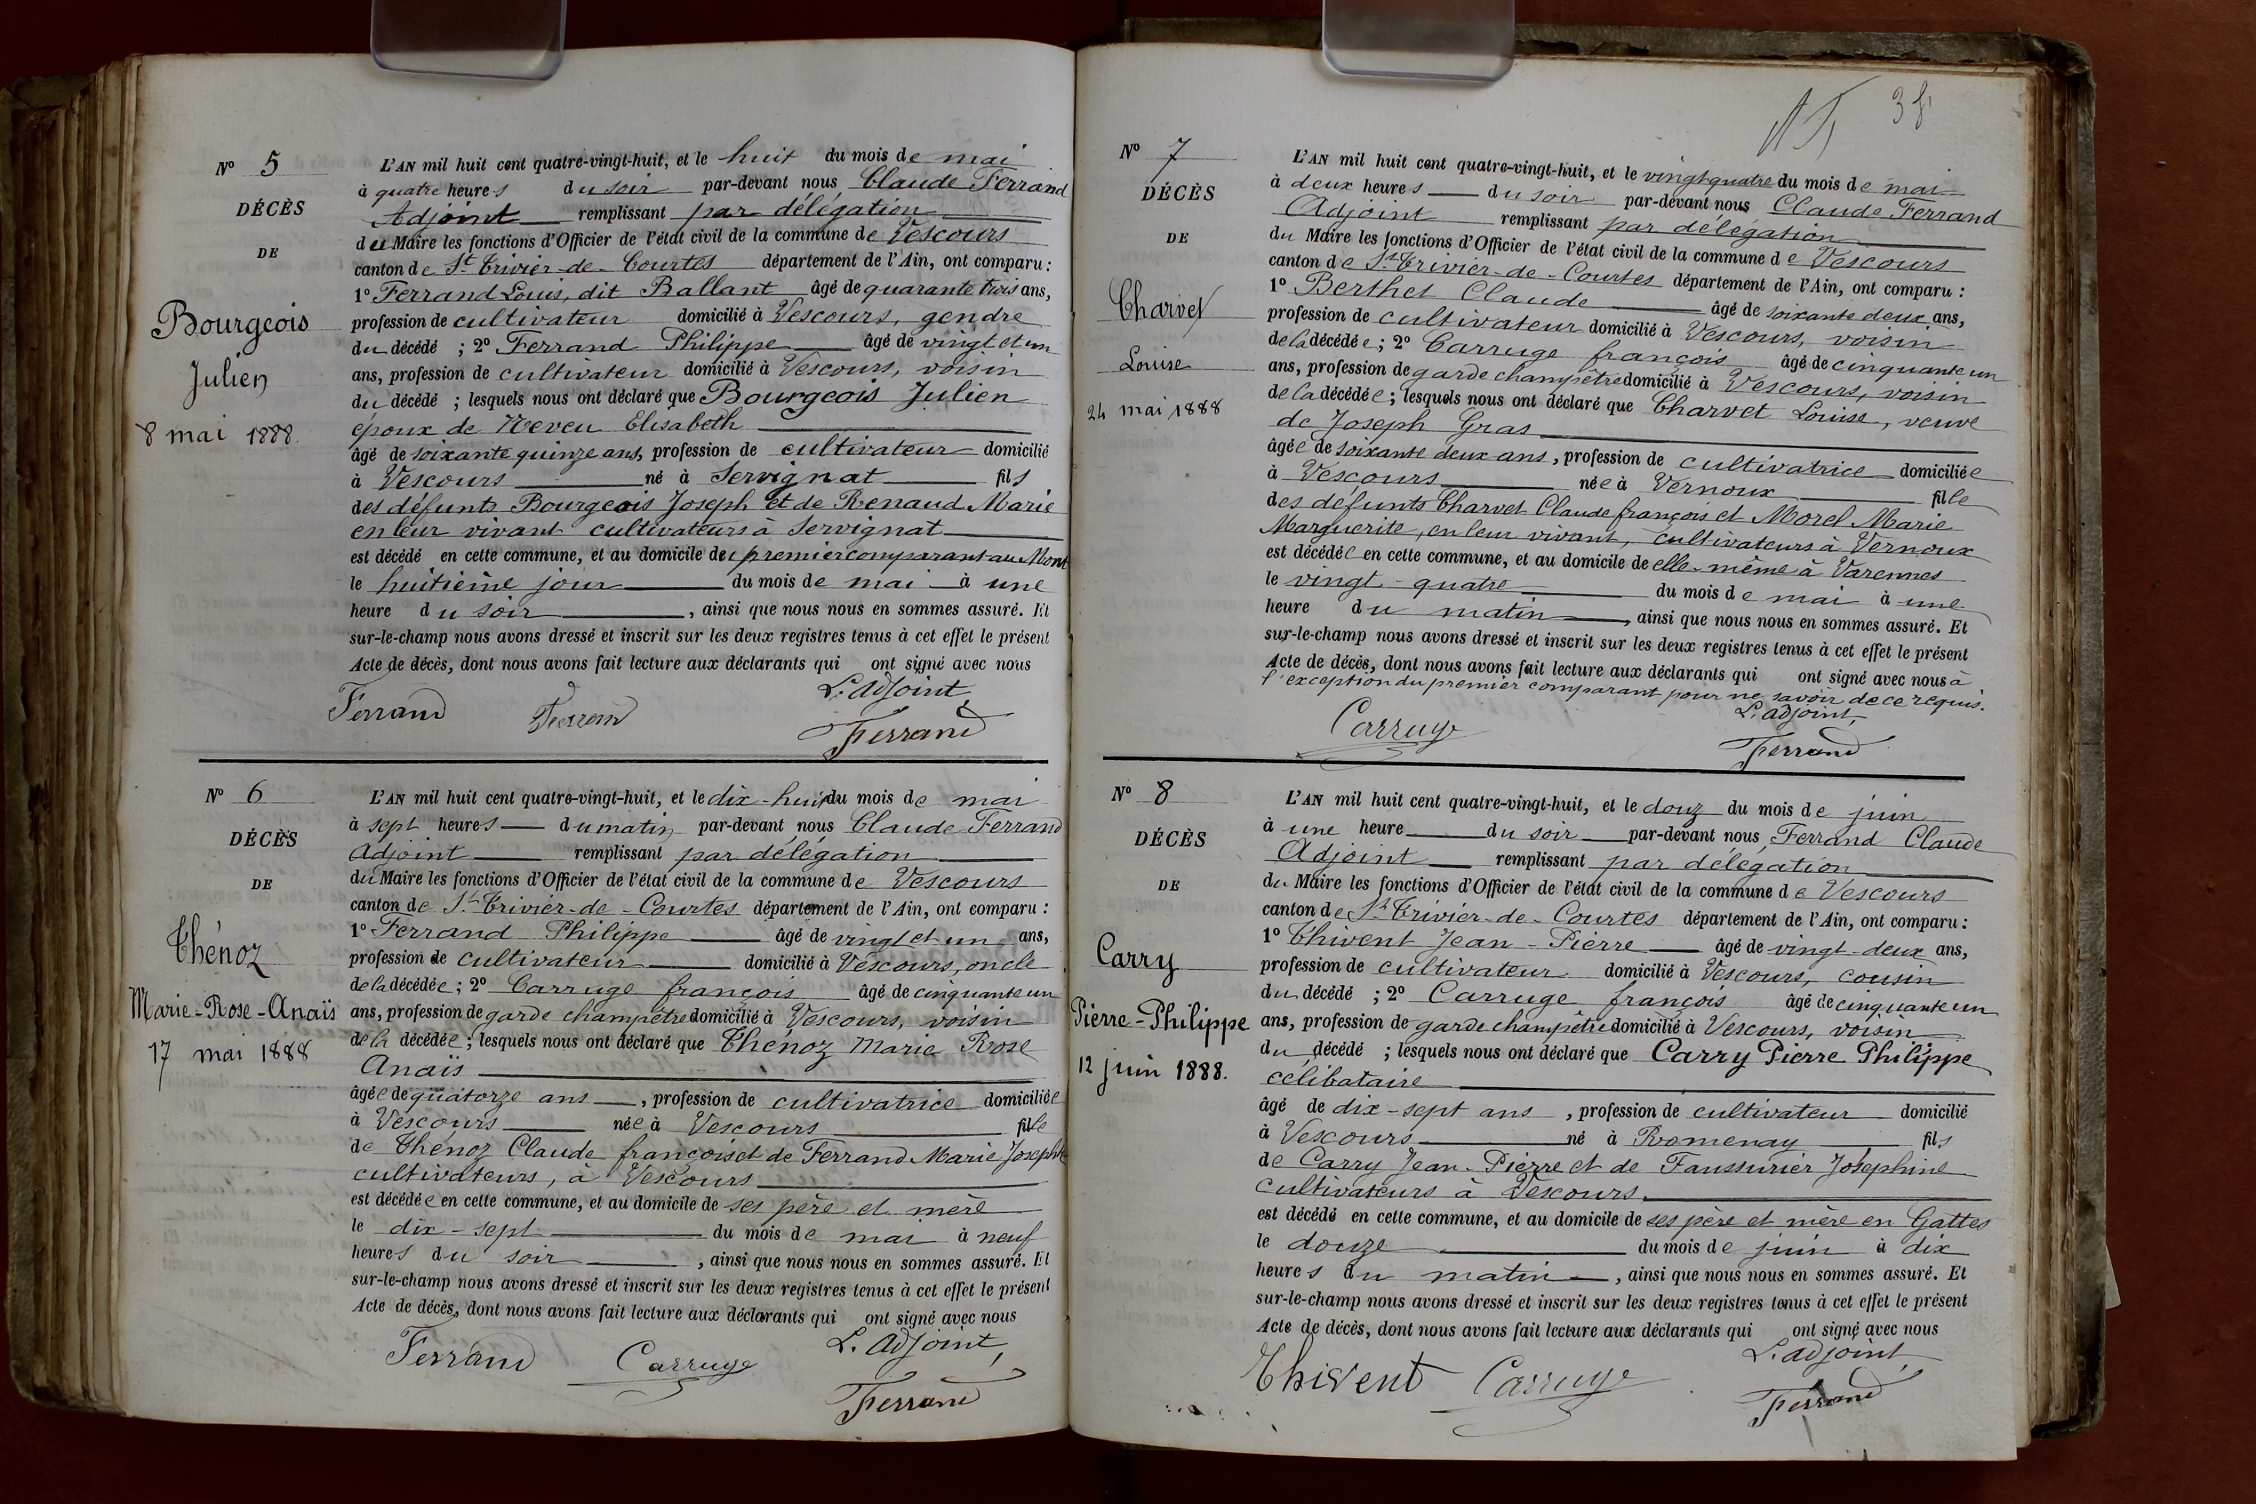 N° 5
DÉCÈS
DE
Bourgeois
Julien
8 mai 1888.
L'AN mil huit cent quatre-vingt-huit, et le huit du mois de mai
à quatre heures du soir par-devant nous Claude Ferrand
Adjoint remplissant par délégation
du Maire les fonctions d'Officier de l'état civil de la commune de Vescours
canton de St Trivier-de-Courtes département de l'Ain, ont comparu :
1° Ferrand Louis, dit Ballant âgé de quarante trois ans,
profession de cultivateur domicilié à Vescours, gendre
du décédé ; 2° Ferrand Philippe âgé de vingt et un
ans, profession de cultivateur domicilié à Vescours, voisin
du décédé ; lesquels nous ont déclaré que Bourgeois Julien
epoux de Neveu Elisabeth
âgé de soixante quinze ans, profession de cultivateur domicilié
à Vescours né à Servignat fils
des défunts Bourgeois Joseph et de Renaud Marie
en leur vivant cultivateurs à Servignat
est décédé en cette commune, et au domicile du premier comparant au Mont
le huitième jour du mois de mai à une
heure du soir, ainsi que nous nous en sommes assuré. Et
sur-le-champ nous avons dressé et inscrit sur les deux registres tenus à cet effet le présent
Acte de décès, dont nous avons fait lecture aux déclarants qui ont signé avec nous
L'adjoint,
Ferrand Ferrand Ferrand
N° 6
DÉCÈS
DE
Thénoz
Marie-Rose-Anaïs
17 mai 1888
L'AN mil huit cent quatre-vingt-huit, et le dix-huit du mois de mai
à sept heures du matin par-devant nous Claude Ferrand
Adjoint remplissant par délégation
du Maire les fonctions d'Officier de l'état civil de la commune de Vescours
canton de St Trivier-de-Courtes département de l'Ain, ont comparu :
1° Ferrand Philippe âgé de vingt et un ans,
profession de cultivateur domicilié à Vescours, oncle
de la décédée ; 2° Carruge françois âgé de cinquante un
ans, profession de garde champêtre domicilié à Vescours, voisin
de la décédée ; lesquels nous ont déclaré que Thenoz Marie Rose
Anaïs
âgée de quatorze ans, profession de cultivatrice domiciliée
à Vescours née à Vescours fille
de Thenoz Claude françois et de Ferrand Marie Josephte
cultivateurs, à Vescours
est décédée en cette commune, et au domicile de ses père et mère
le dix-sept du mois de mai à neuf
heures du soir, ainsi que nous nous en sommes assuré. Et
sur-le-champ nous avons dressé et inscrit sur les deux registres tenus à cet effet le présent
Acte de décès, dont nous avons fait lecture aux déclarants qui ont signé avec nous
L'adjoint,
Ferrand Carruge Ferrand
38
N° 7
DÉCÈS
DE
Charvet
Louise
24 mai 1888
L'AN mil huit cent quatre-vingt-huit, et le vingt quatre du mois de mai
à deux heures du soir par-devant nous Claude Ferrand
Adjoint remplissant par délégation
du Maire les fonctions d'Officier de l'état civil de la commune de Vescours
canton de St Trivier-de-Courtes département de l'Ain, ont comparu :
1° Berthet Claude âgé de soixante deux ans,
profession de cultivateur domicilié à Vescours, voisin
de la décédée ; 2° Carruge françois âgé de cinquante un
ans, profession de garde champêtre domicilié à Vescours, voisin
de la décédée ; lesquels nous ont déclaré que Charvet Louise, veuve
de Joseph Gras
âgée de soixante deux ans, profession de cultivatrice domiciliée
à Vescours née à Vernoux fille
des défunts Charvet Claude françois et Morel Marie
Marguerite, en leur vivant, cultivateurs à Vernoux
est décédée en cette commune, et au domicile de elle-même à Varennes
le vingt-quatre du mois de mai à une
heure du matin, ainsi que nous nous en sommes assuré. Et
sur-le-champ nous avons dressé et inscrit sur les deux registres tenus à cet effet le présent
Acte de décès, dont nous avons fait lecture aux déclarants qui ont signé avec nous à
l'exception du premier comparant pour ne savoir de ce requis.
L'adjoint,
Carruge Ferrand
N° 8
DÉCÈS
DE
Carry
Pierre-Philippe
12 juin 1888.
L'AN mil huit cent quatre-vingt-huit, et le douz du mois de juin
à une heure du soir par-devant nous, Ferrand Claude
Adjoint remplissant par délégation
du Maire les fonctions d'Officier de l'état civil de la commune de Vescours
canton de St Trivier-de-Courtes département de l'Ain, ont comparu :
1° Thivent Jean-Pierre âgé de vingt-deux ans,
profession de cultivateur domicilié à Vescours, cousin
du décédé ; 2° Carruge françois âgé de cinquante un
ans, profession de garde champêtre domicilié à Vescours, voisin
du décédé ; lesquels nous ont déclaré que Carry Pierre Philippe
célibataire
âgé de dix-sept ans, profession de cultivateur domicilié
à Vescours né à Romenay fils
de Carry Jean-Pierre et de Faussurier Josephine
cultivateurs à Vescours.
est décédé en cette commune, et au domicile de ses père et mère en Gattes
le douze du mois de juin à dix
heures du matin, ainsi que nous nous en sommes assuré. Et
sur-le-champ nous avons dressé et inscrit sur les deux registres tenus à cet effet le présent
Acte de décès, dont nous avons fait lecture aux déclarants qui ont signé avec nous
L'adjoint,
Thivent Carruge Ferrand